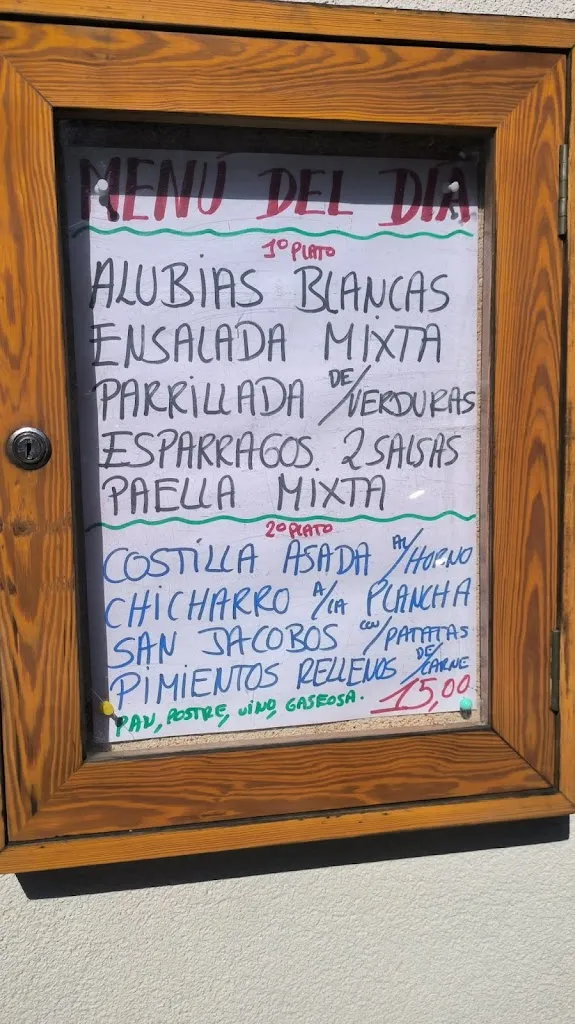 MENÚ DEL DÍA
1º PLATO
ALUBIAS BLANCAS
ENSALADA MIXTA
PARRILLADA DE/VERDURAS
ESPARRAGOS. 2 SALSAS
PAELLA MIXTA
2º PLATO
COSTILLA ASADA AL/HORNO
CHICHARRO A/LA PLANCHA
SAN JACOBOS CON/PATATAS
PIMIENTOS RELLENOS DE/CARNE
PAN, POSTRE, VINO, GASEOSA. 15,00